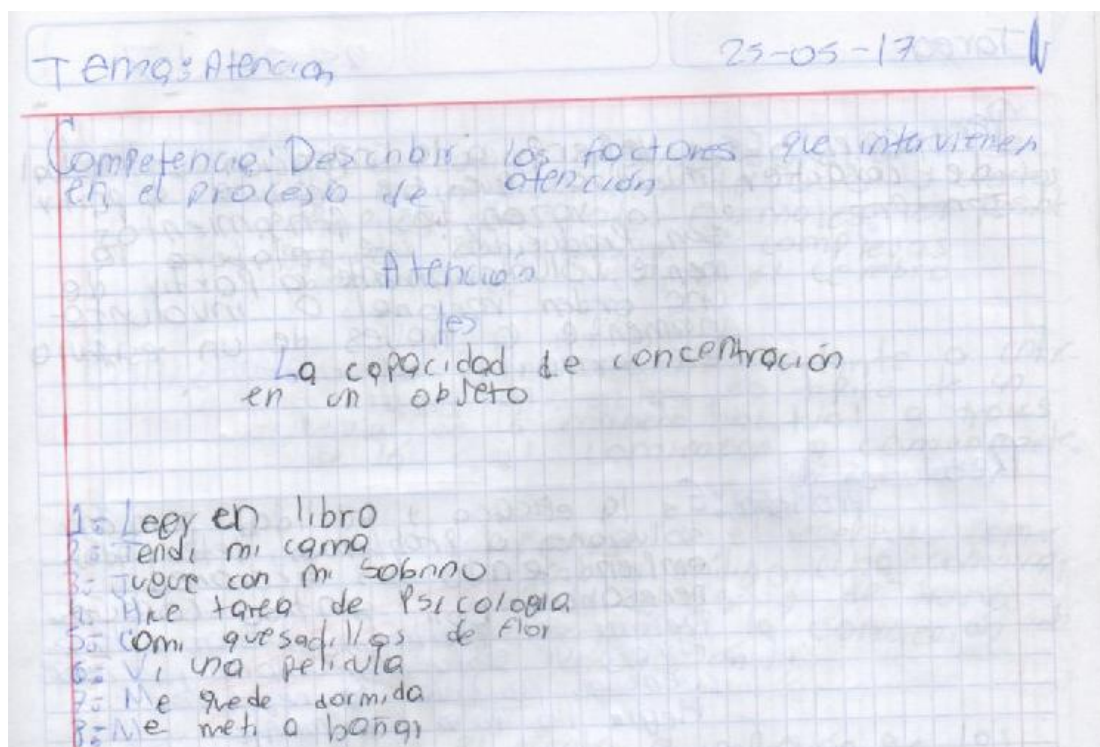 Tema: Atención
25-05-17
Competencia: Describir los factores que intervienen
en el proceso de atención
Atención
es
La capacidad de concentración
en un objeto
1- Leer en libro
2- Tendi mi cama
3- Jugue con mi sobrino
4- Hice tarea de Psicologia
5- Comi quesadillas de flor
6- Vi una pelicula
7- Me quede dormida
8- Me meti a bañar